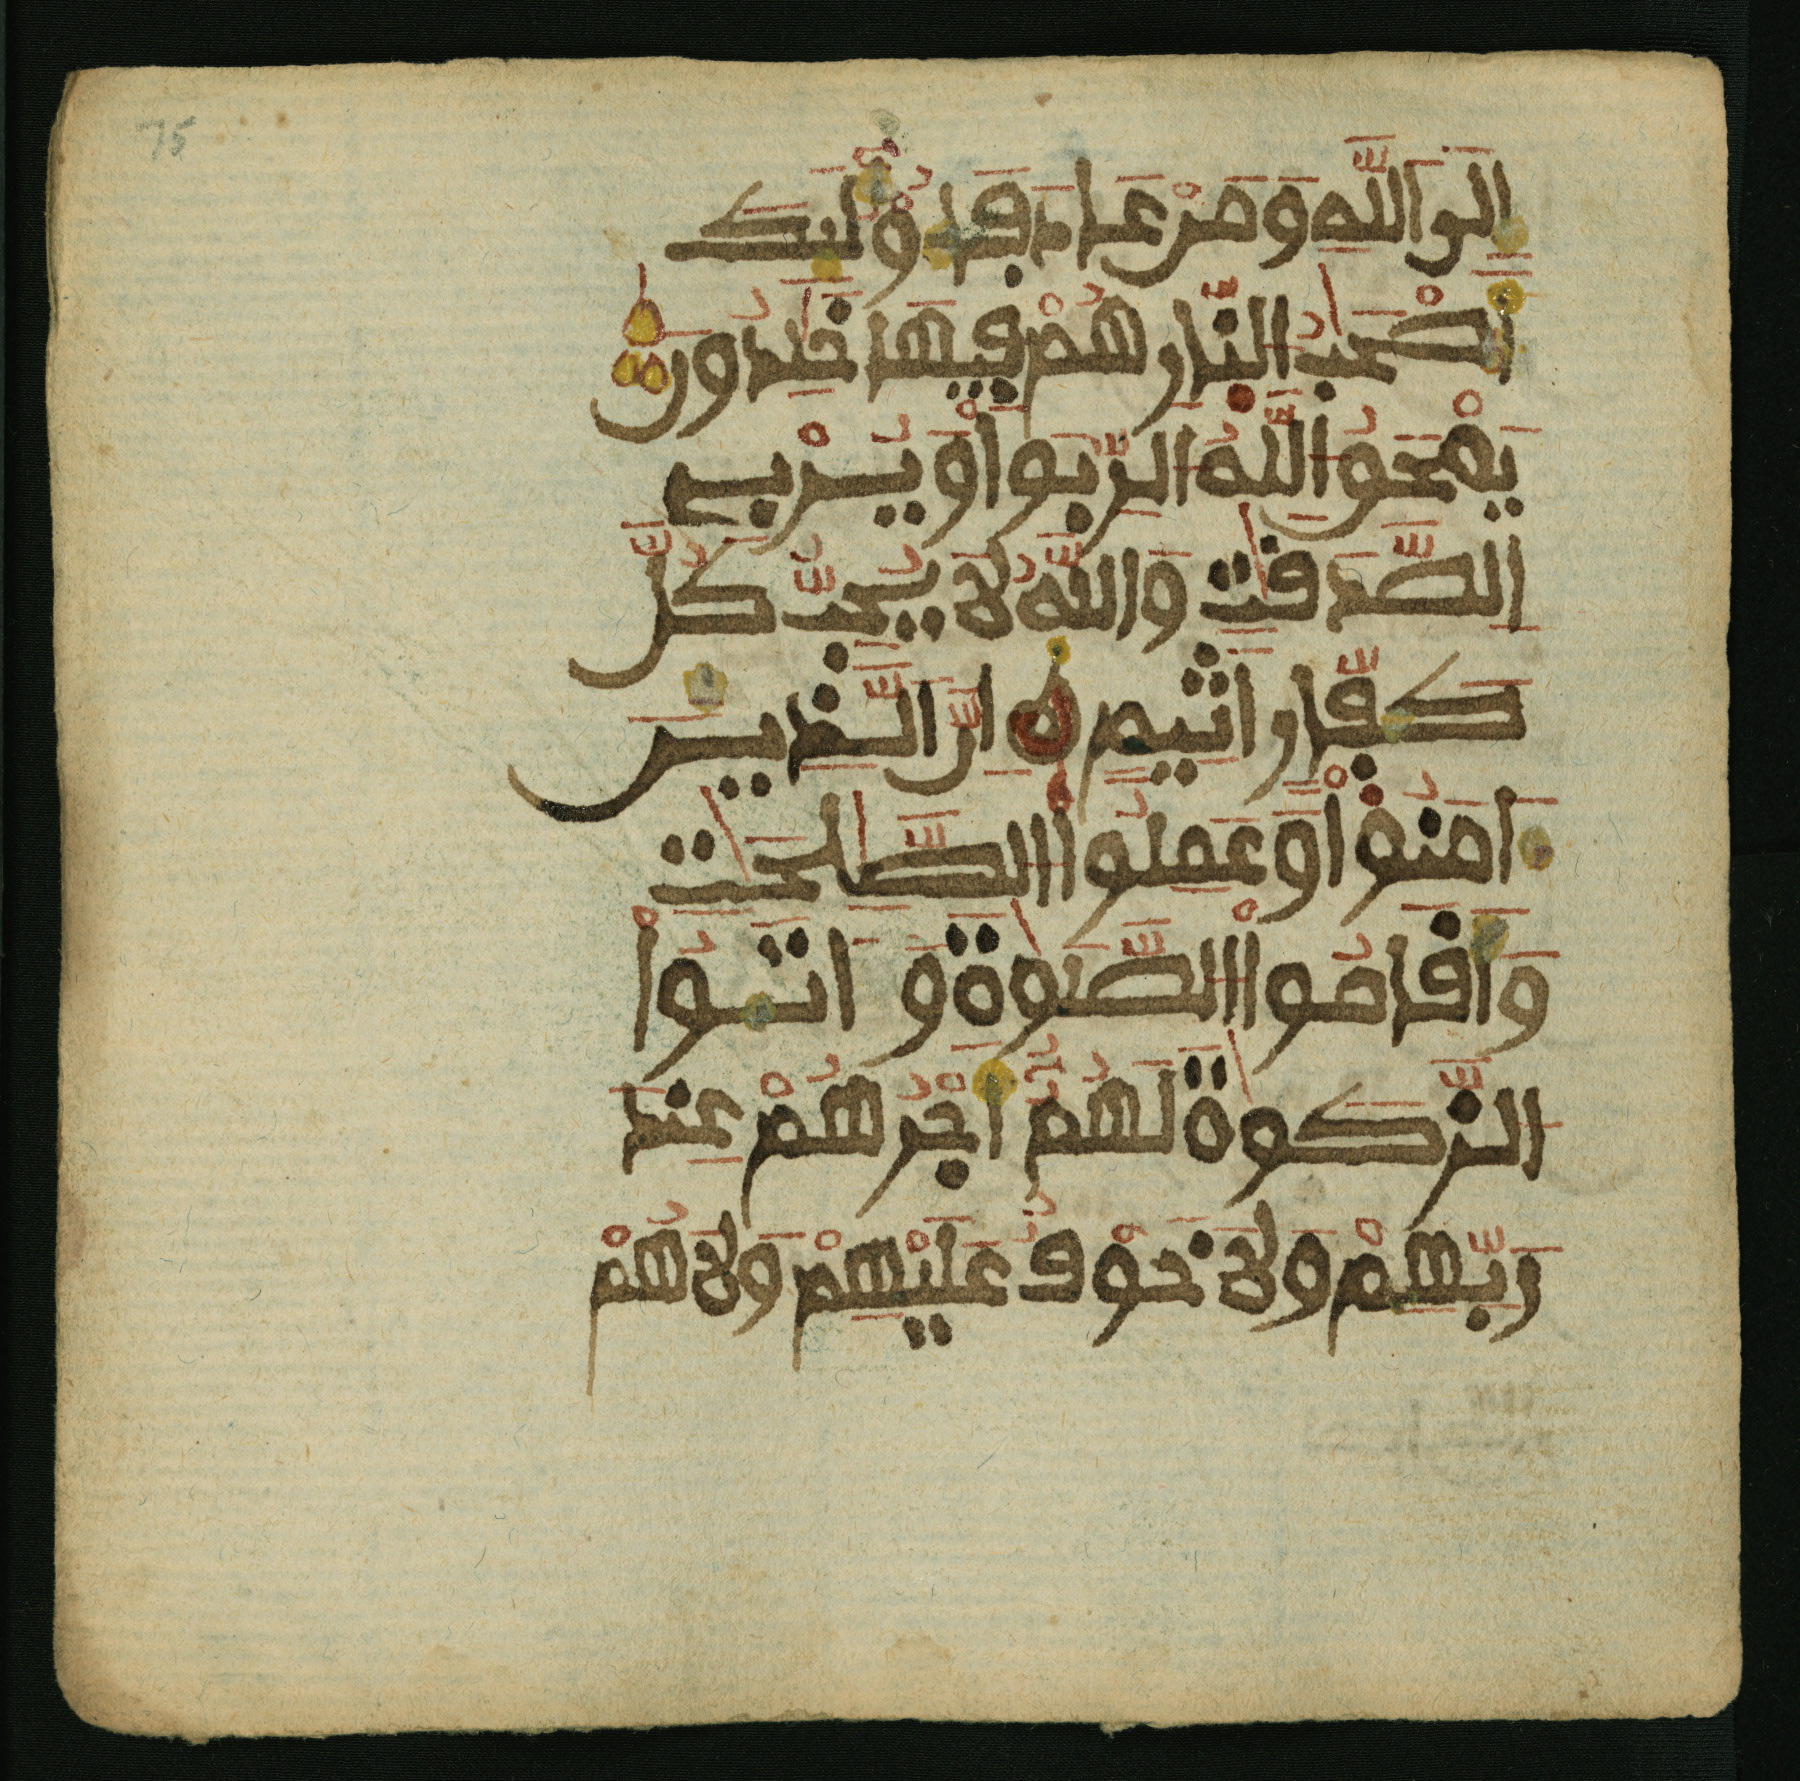 75
إِلَى اللَّهِ وَمَنْ عَادَ فَأُوْلَٰئِكَ
أَصْحَٰبُ النَّارِ هُمْ فِيهَا خَٰلِدُونَ
يَمْحَقُ اللَّهُ الرِّبَوٰاْ وَيُرْبِي
الصَّدَقَٰتِ وَاللَّهُ لَا يُحِبُّ كُلَّ
كَفَّارٍ اَثِيمٍ اِنَّ الَّذِينَ
ءَامَنُواْ وَعَمِلُواْ الصَّٰلِحَٰتِ
وَأَقَامُواْ الصَّلَوٰةَ وَءَاتَوُاْ
الزَّكَوٰةَ لَهُمُۥ أَجْرُهُمْ عِندَ
رَبِّهِمْ وَلَا خَوْفٌ عَلَيْهِمْ وَلَا هُمْ